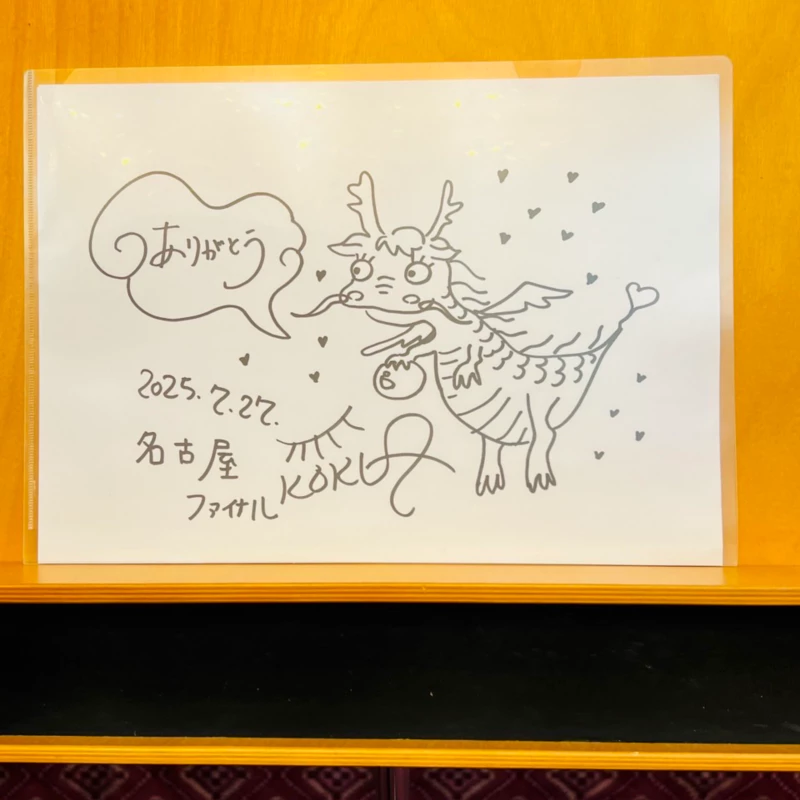 ありがとう
2025.7.27.
名古屋
ファイナル
KOKU